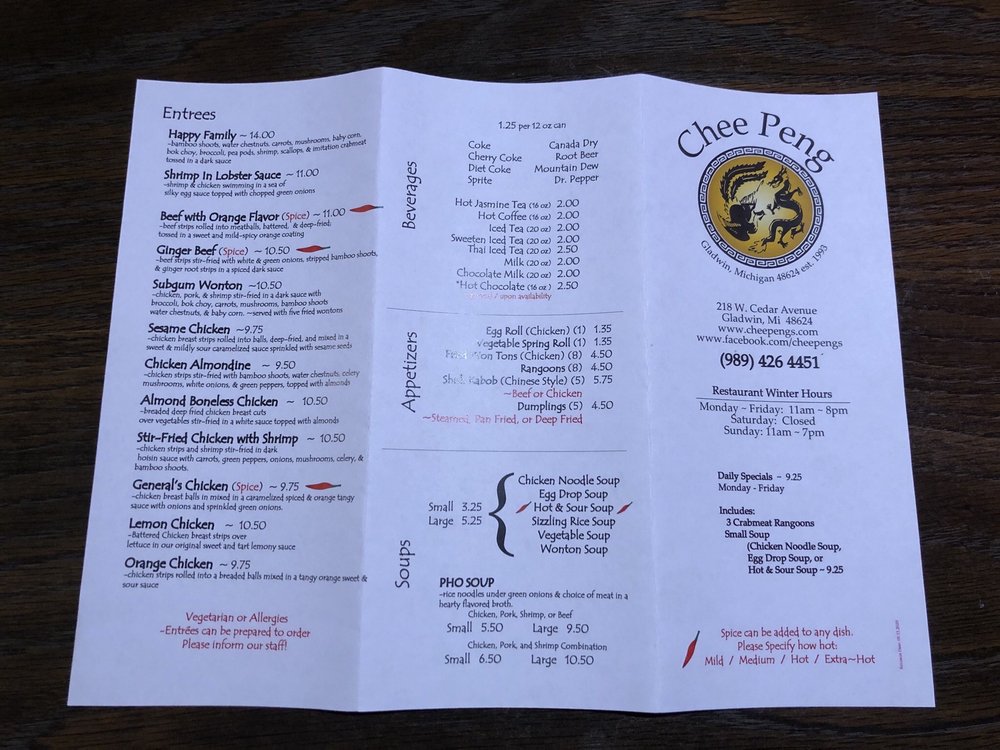 Entrees
Happy Family ~ 14.00
~bamboo shoots, water chestnuts, carrots, mushrooms, baby corn,
bok choy, broccoli, pea pods, shrimp, scallops, & imitation crabmeat
tossed in a dark sauce
Shrimp In Lobster Sauce ~ 11.00
~shrimp & chicken swimming in a sea of
silky egg sauce topped with chopped green onions
Beef with Orange Flavor (Spice) ~ 11.00
~beef strips rolled into meatballs, battered, & deep-fried;
tossed in a sweet and mild-spicy orange coating
Ginger Beef (Spice) ~ 10.50
~beef strips stir-fried with white & green onions, stripped bamboo shoots,
& ginger root strips in a spiced dark sauce
Subgum Wonton ~10.50
~chicken, pork, & shrimp stir-fried in a dark sauce with
broccoli, bok choy, carrots, mushrooms, bamboo shoots
water chestnuts, & baby corn. ~served with five fried wontons
Sesame Chicken ~9.75
~chicken breast strips rolled into balls, deep-fried, and mixed in a
sweet & mildly sour caramelized sauce sprinkled with sesame seeds
Chicken Almondine ~ 9.50
~chicken strips stir-fried with bamboo shoots, water chestnuts, celery
mushrooms, white onions, & green peppers, topped with almonds
Almond Boneless Chicken ~ 10.50
~breaded deep fried chicken breast cuts
over vegetables stir-fried in a white sauce topped with almonds
Stir-Fried Chicken with Shrimp ~ 10.50
~chicken strips and shrimp stir-fried in dark
hoisin sauce with carrots, green peppers, onions, mushrooms, celery, &
bamboo shoots.
General's Chicken (Spice) ~ 9.75
~chicken breast balls in mixed in a caramelized spiced & orange tangy
sauce with onions and sprinkled green onions.
Lemon Chicken ~ 10.50
~Battered Chicken breast strips over
lettuce in our original sweet and tart lemony sauce
Orange Chicken ~ 9.75
~chicken strips rolled into a breaded balls mixed in a tangy orange sweet &
sour sauce
Vegetarian or Allergies
~Entrées can be prepared to order
Please inform our staff!
Beverages
1.25 per 12 oz can
Coke Canada Dry
Cherry Coke Root Beer
Diet Coke Mountain Dew
Sprite Dr. Pepper
Hot Jasmine Tea (16 oz) 2.00
Hot Coffee (16 oz) 2.00
Iced Tea (20 oz) 2.00
Sweeten Iced Tea (20 oz) 2.00
Thai Iced Tea (20 oz) 2.50
Milk (20 oz) 2.00
Chocolate Milk (20 oz) 2.00
*Hot Chocolate (16 oz) 2.50
upon availability
Appetizers
Egg Roll (Chicken) (1) 1.35
Vegetable Spring Roll (1) 1.35
Fried Won Tons (Chicken) (8) 4.50
Rangoons (8) 4.50
Shish Kabob (Chinese Style) (5) 5.75
~Beef or Chicken
Dumplings (5) 4.50
~Steamed, Pan Fried, or Deep Fried
Soups
Small 3.25
Large 5.25
Chicken Noodle Soup
Egg Drop Soup
Hot & Sour Soup
Sizzling Rice Soup
Vegetable Soup
Wonton Soup
PHO SOUP
~rice noodles under green onions & choice of meat in a
hearty flavored broth.
Chicken, Pork, Shrimp, or Beef
Small 5.50 Large 9.50
Chicken, Pork, and Shrimp Combination
Small 6.50 Large 10.50
Chee Peng
Gladwin, Michigan 48624 est. 1993
218 W. Cedar Avenue
Gladwin, Mi 48624
www.cheepengs.com
www.facebook.com/cheepengs
(989) 426 4451
Restaurant Winter Hours
Monday ~ Friday: 11am ~ 8pm
Saturday: Closed
Sunday: 11am ~ 7pm
Daily Specials ~ 9.25
Monday - Friday
Includes:
3 Crabmeat Rangoons
Small Soup
(Chicken Noodle Soup,
Egg Drop Soup, or
Hot & Sour Soup ~ 9.25
Spice can be added to any dish.
Please Specify how hot:
Mild / Medium / Hot / Extra~Hot